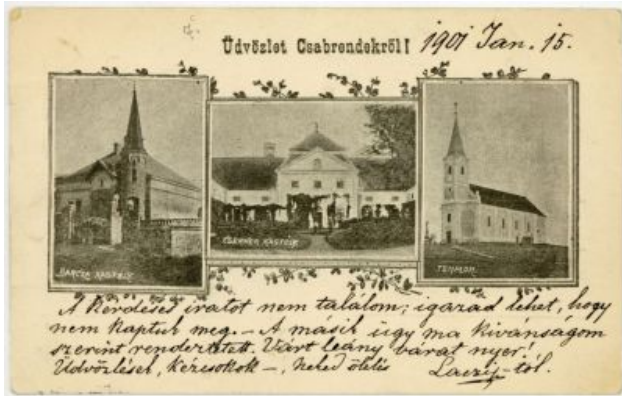 Üdvözlet Csabrendekről! 1901 Jan. 15.
BARCZA KASTÉLY
CSERNEK KASTÉLY
TEMPLOM.
A kérdéses iratot nem találom; igazad lehet, hogy
nem kaptuk meg. – A másik ügy ma kivánságom
szerint rendeztetett. Várt leány várat nyer!
Üdvözlések, kézcsókok –, Neked ölelés
Laczij-tól.